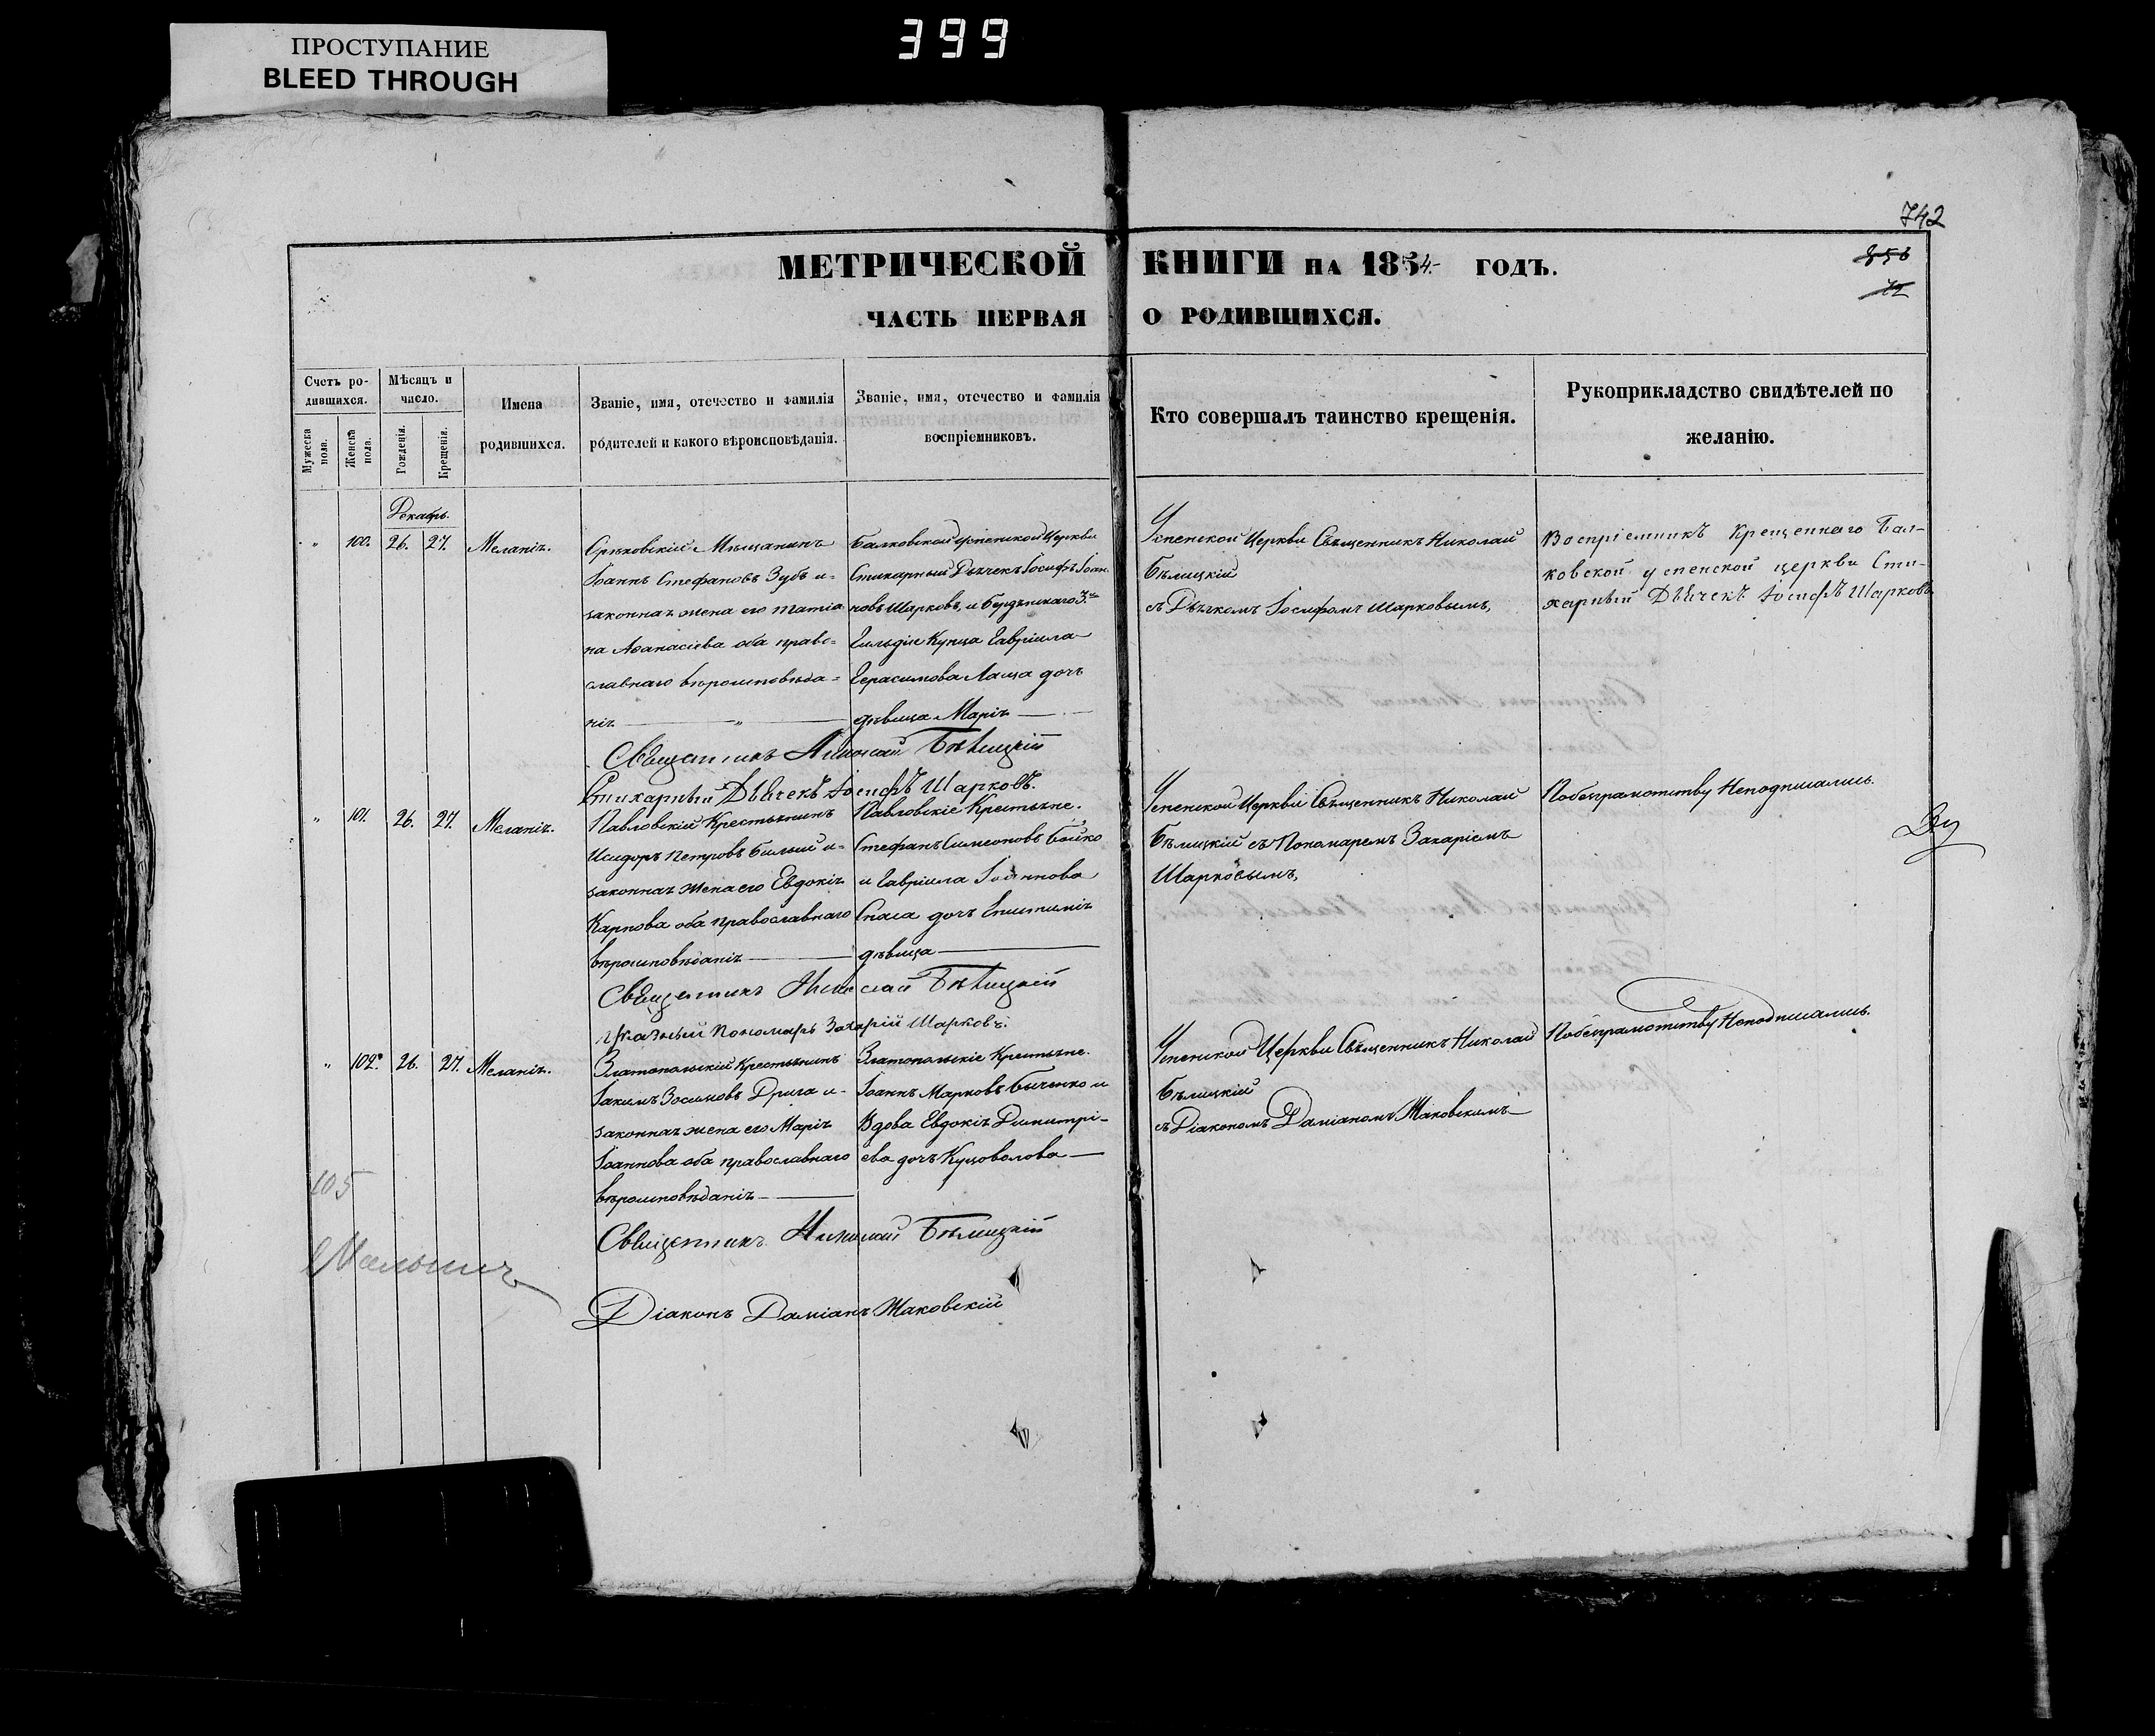 ПРОСТУПАНИЕ
BLEED THROUGH
399
742
МЕТРИЧЕСКОЙ КНИГИ НА 1854 ГОДЪ.
856
72
ЧАСТЬ ПЕРВАЯ О РОДИВШИХСЯ.
Счетъ ро-
дившихся.
Мужеска пола.
Женска пола.
Мѣсяцъ и
число.
Рожденія.
Крещенія.
Имена
родившихся.
Званіе, имя, отечество и фамилія
родителей и какого вѣроисповѣданія.
Званіе, имя, отечество и фамилія
воспріемниковъ.
Кто совершалъ таинство крещенія.
Рукоприкладство свидѣтелей по
желанію.
Декабрь.
" 100. 26. 27. Меланія.
Мѣщанинъ
Іоаннъ Стефановъ Зубъ и-
законная жена его Татіа
на Аѳанасіева оба право=
славнаго вѣроисповѣда=
нія
Балковской Успенской Церкви
Стихарный Дьячекъ Іосифъ Іоан
новъ Шарковъ, и 3.й
Гильдіи Купца Гавріила
Герасимова Лаща дочь
дѣвица Марія
Успенской Церкви Священникъ Николай
Бѣлицкій
съ Дьячкомъ Іосифомъ Шарковымъ,
Воспріемникъ Крещеннаго Бал-
ковской успенской церкви Сти-
харный Дьячекъ Іосифъ Шарковъ
Священникъ Николай Бѣлицкій
Стихарный Дьячекъ Іосифъ Шарковъ.
" 101. 26. 27. Меланія.
Павловскій Крестьянинъ
Исидоръ Петровъ Билый и-
законная жена его Евдокія
Карпова оба православнаго
вѣроисповѣданія
Павловскіе Крестьяне.
Стефанъ Симеоновъ Бойко
и Гавріила Іоаннова
Спаса дочь
дѣвица
Успенской Церкви Священникъ Николай
Бѣлицкій съ Пономаремъ Захаріемъ
Шарковымъ,
Побезграмотству Неподписались.
Священникъ Николай Бѣлицкій
Указный Пономарь Захарій Шарковъ.
" 102. 26. 27. Меланія.
Златопольскій Крестьянинъ
Іакимъ Зосимовъ Дрига и-
законная жена его Марія
Іоаннова оба православнаго
вѣроисповѣданія
Златопольскіе Крестьяне.
Іоаннъ Марковъ Быченко и
Вдова Евдокія Димитрі-
ева дочь Куцоволова
Успенской Церкви Священникъ Николай
Бѣлицкій
съ Діакономъ Даміаномъ Маковскимъ
Побезграмотству Неподписались.
105
Священникъ Николай Бѣлицкій
Діаконъ Даміанъ Маковскій